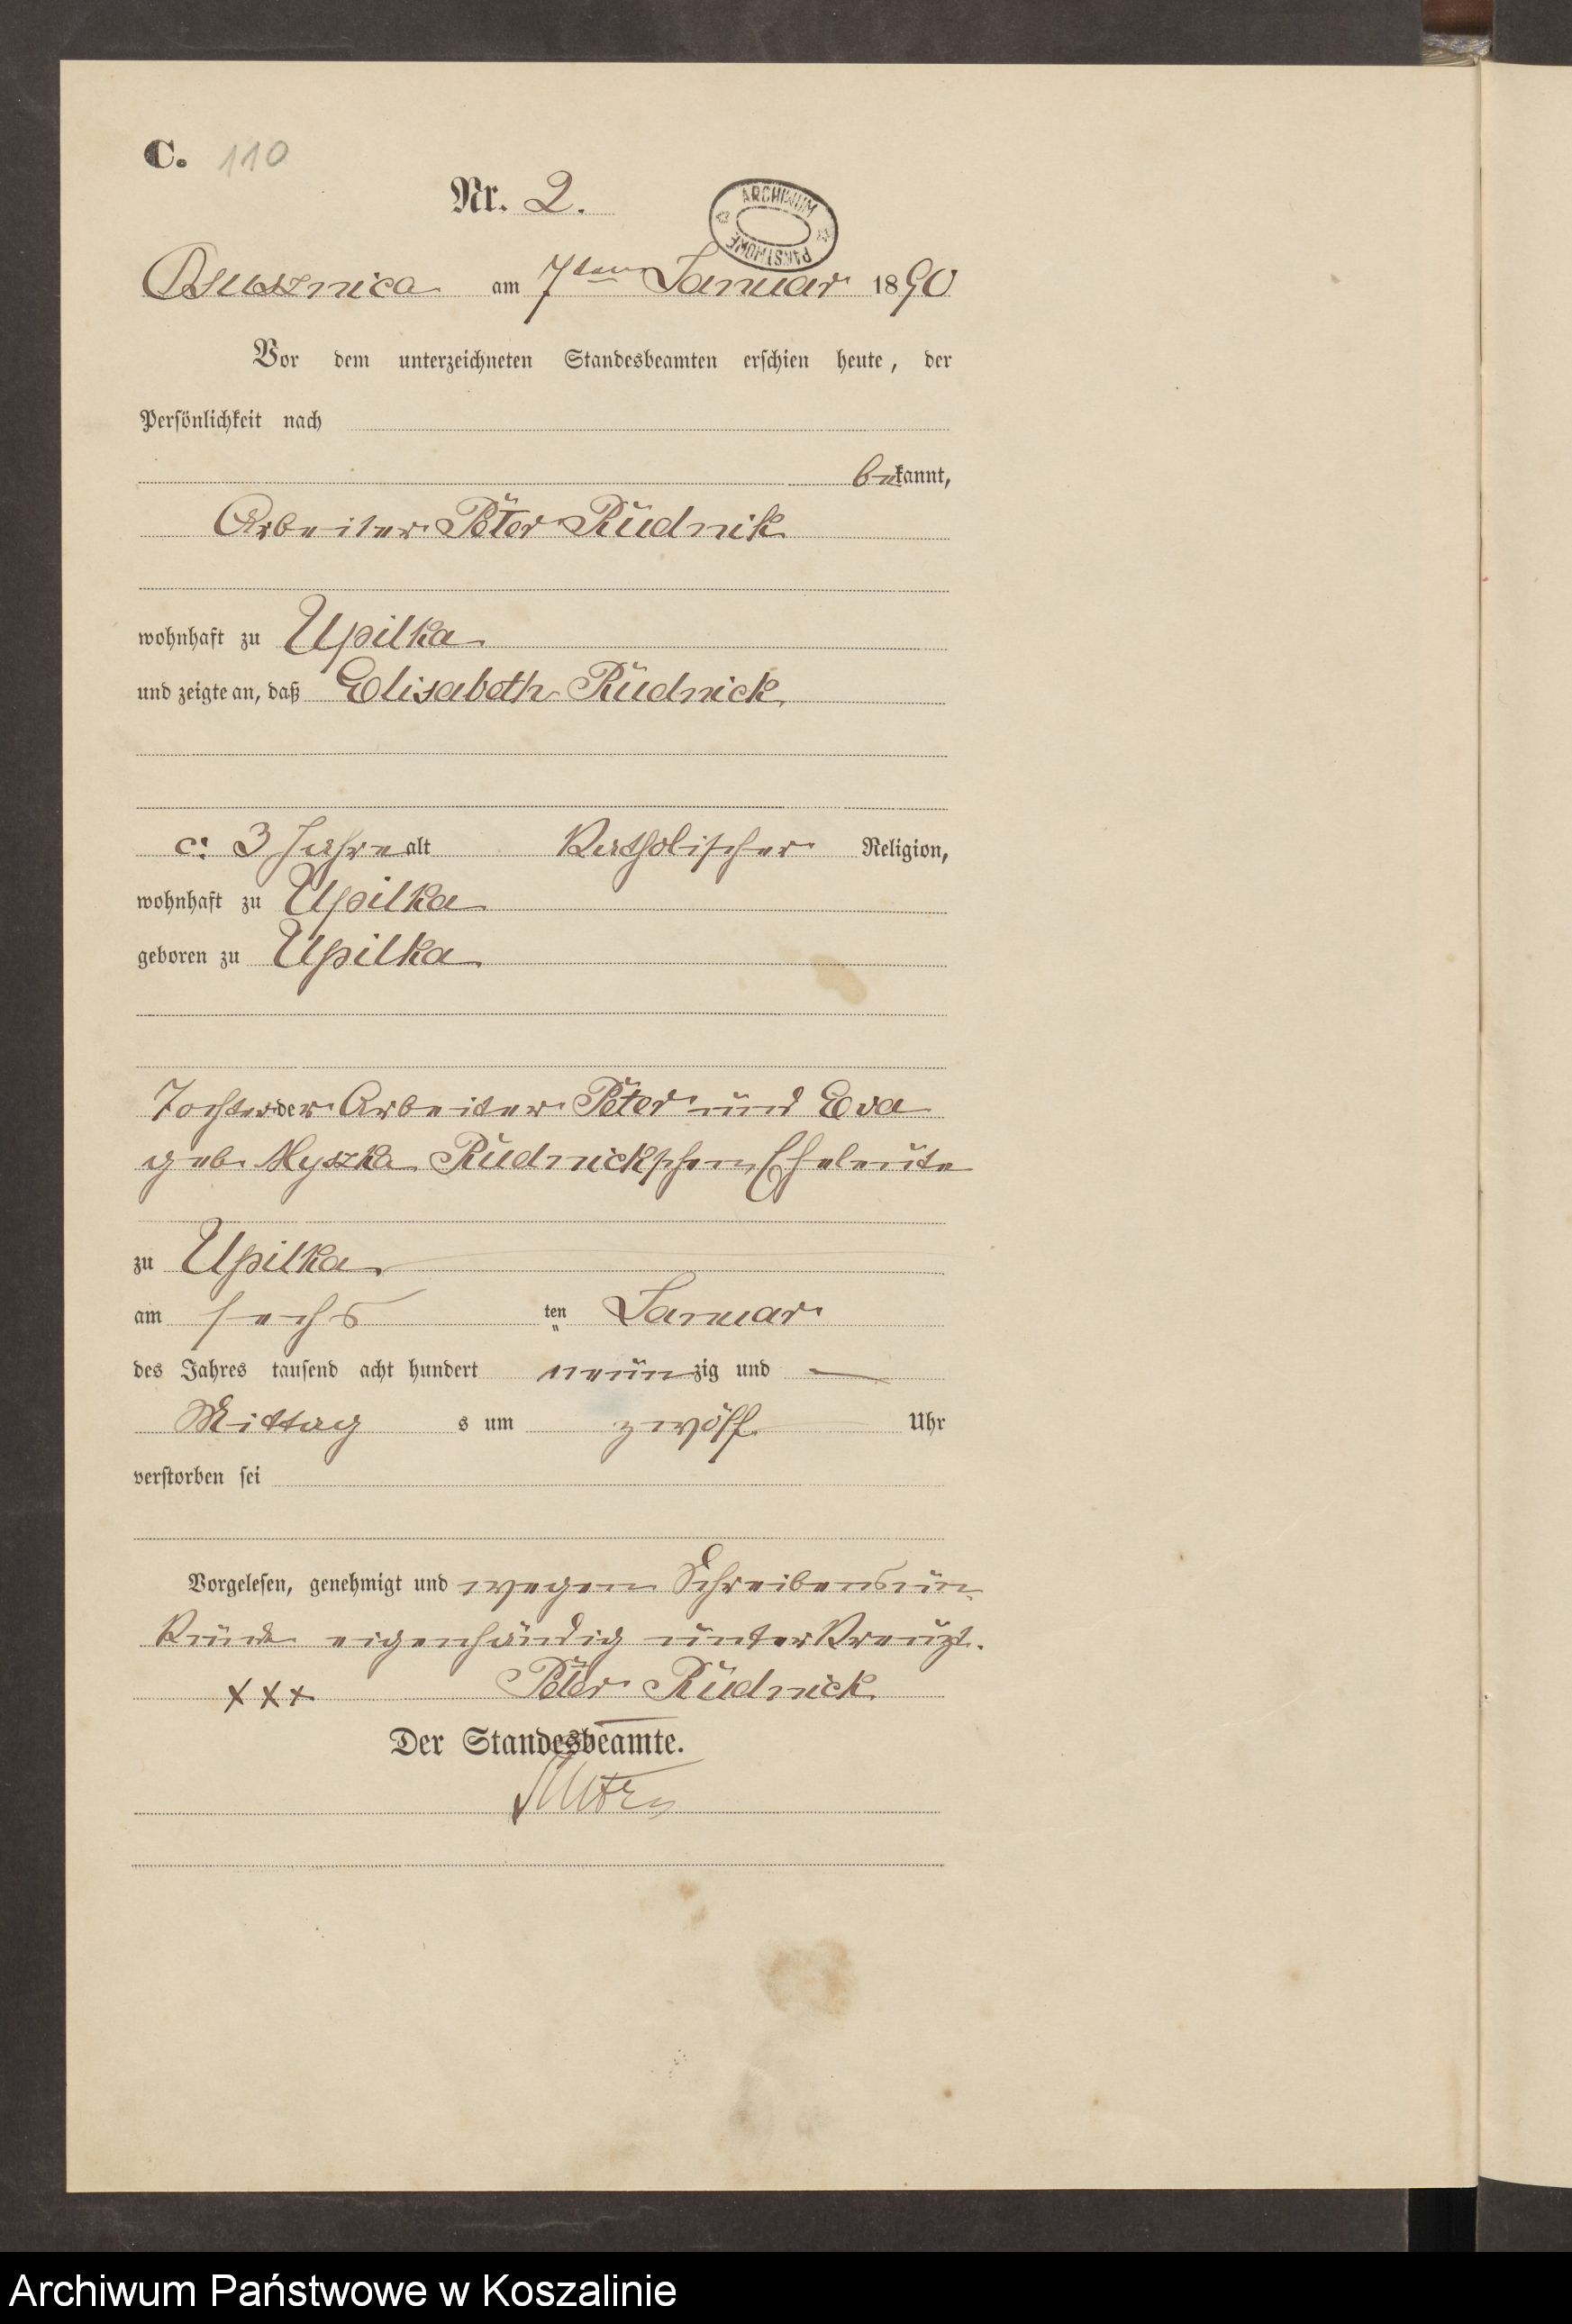 C. 110
Nr. 2.
ARCHIWUM PAŃSTWOWE
Osusznica am 7ten Januar 1890
Vor dem unterzeichneten Standesbeamten erschien heute, der
Persönlichkeit nach
bekannt,
Arbeiter Peter Rudnik
wohnhaft zu Upilka
und zeigte an, daß Elisabeth Rudnick
c: 3 Jahre alt Katholischer Religion,
wohnhaft zu Upilka
geboren zu Upilka
Tochter der Arbeiter Peter und Eva
geb. Myszka Rudnickschen Eheleute
zu Upilka
am sechs ten Januar
des Jahres tausend acht hundert neunzig und —
Mittag s um zwölf Uhr
verstorben sei
Vorgelesen, genehmigt und wegen Schreibensun-
kunde eigenhändig unterkreuzt.
xxx Peter Rudnick
Der Standesbeamte.
Archiwum Państwowe w Koszalinie